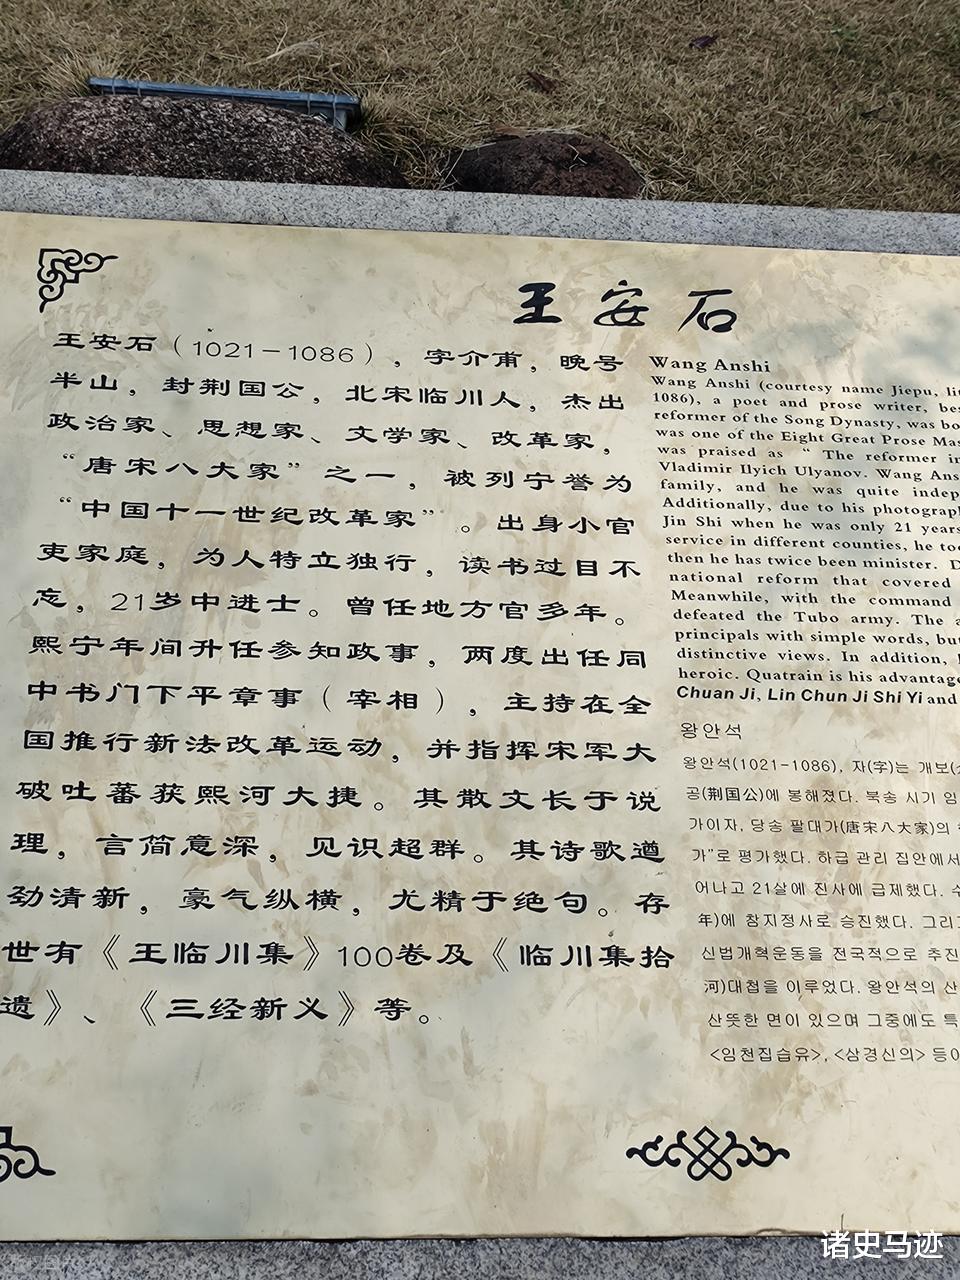 王安石
王安石（1021－1086），字介甫，晚号
半山，封荆国公，北宋临川人，杰出
政治家、思想家、文学家、改革家，
“唐宋八大家”之一，被列宁誉为
“中国十一世纪改革家”。出身小官
吏家庭，为人特立独行，读书过目不
忘，21岁中进士。曾任地方官多年。
熙宁年间升任参知政事，两度出任同
中书门下平章事（宰相），主持在全
国推行新法改革运动，并指挥宋军大
破吐蕃获熙河大捷。其散文长于说
理，言简意深，见识超群。其诗歌遒
劲清新，豪气纵横，尤精于绝句。存
世有《王临川集》100卷及《临川集拾
遗》、《三经新义》等。
Wang Anshi
Wang Anshi (courtesy name Jiepu,
1086), a poet and prose writer,
reformer of the Song Dynasty, was
was one of the Eight Great Prose
was praised as “ The reformer
Vladimir Ilyich Ulyanov. Wang
family, and he was quite
Additionally, due to his
Jin Shi when he was only 21 years
service in different counties, he
then he has twice been minister.
national reform that covered
Meanwhile, with the command
defeated the Tubo army. The
principals with simple words,
distinctive views. In addition,
heroic. Quatrain is his
Chuan Ji, Lin Chun Ji Shi Yi and
왕안석
왕안석(1021-1086), 자(字)는 개보(
공(荆国公)에 봉해졌다. 북송 시기 임
가이자, 당송 팔대가(唐宋八大家)의
가”로 평가했다. 하급 관리 집안에서
어나고 21살에 진사에 급제했다.
年)에 참지정사로 승진했다. 그리고
신법개혁운동을 전국적으로 추진
河)대첩을 이루었다. 왕안석의 산
산뜻한 면이 있으며 그중에도 특
<임천집습유>, <삼경신의> 등이
诸史马迹